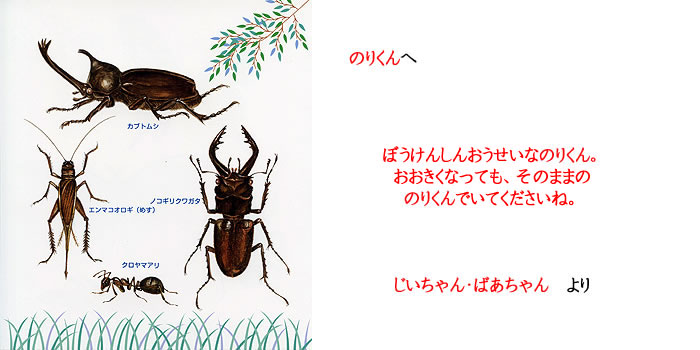 カブトムシ
ノコギリクワガタ
エンマコオロギ（めす）
クロヤマアリ
のりくんへ
ぼうけんしんおうせいなのりくん。
おおきくなっても、そのままの
のりくんでいてくださいね。
じいちゃん・ばあちゃん　より